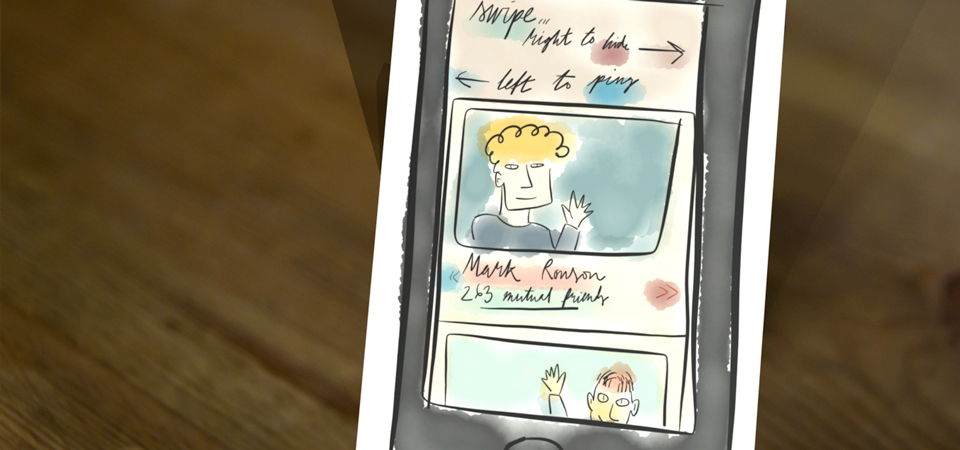 swipe...
right to hide
left to ping
Mark Ronson
263 mutual friends